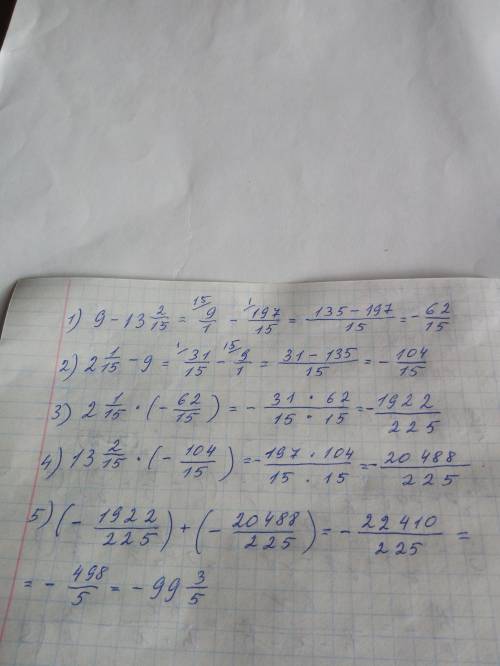 1) 9 - 13 2/15 = 15/ 9/1 - 1/ 197/15 = (135 - 197)/15 = - 62/15
2) 2 1/15 - 9 = 1/ 31/15 - 15/ 9/1 = (31 - 135)/15 = - 104/15
3) 2 1/15 · (- 62/15) = - (31 · 62)/(15 · 15) = - 1922/225
4) 13 2/15 · (- 104/15) = - (197 · 104)/(15 · 15) = - 20488/225
5) (- 1922/225) + (- 20488/225) = - 22410/225 =
= - 498/5 = - 99 3/5